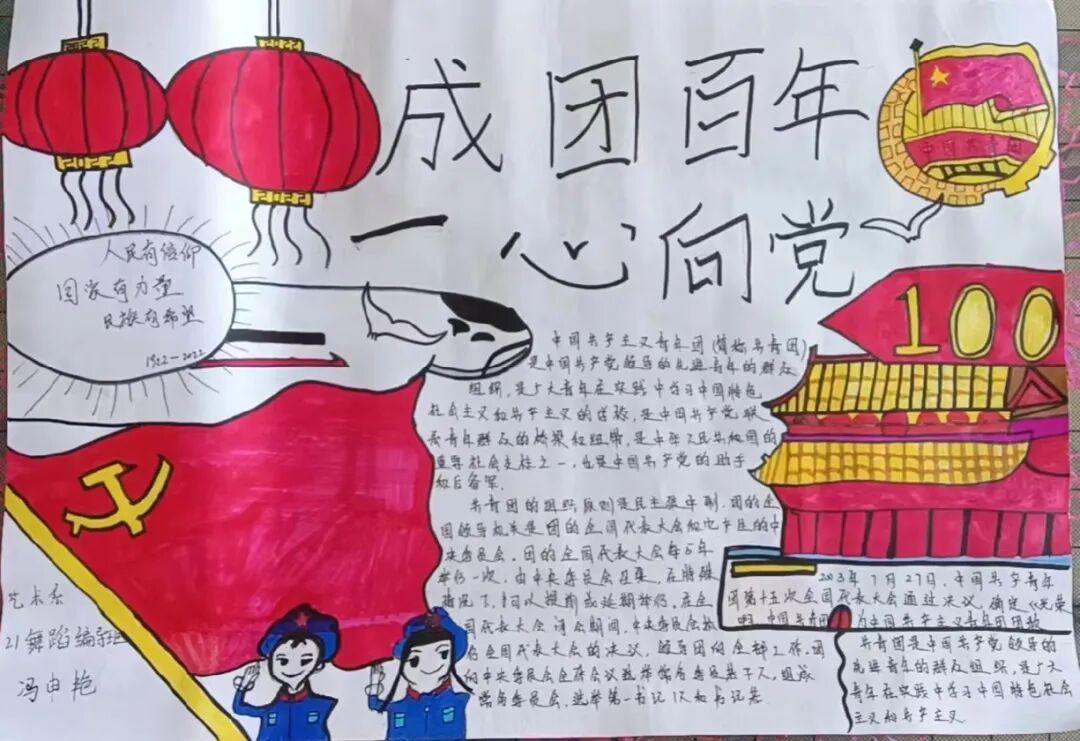 2022
2022
成团百年
一心向党
中国共青团
人民有信仰
国家有力量
民族有希望
1922-2022
100
中国共产主义青年团(简称共青团)
是中国共产党领导的先进青年的群众
组织,是广大青年在实践中学习中国特色
社会主义和共产主义的学校,是中国共产党联
系青年群众的桥梁和纽带,是中华人民共和国的
重要社会支柱之一,也是中国共产党的助手
和后备军.
共青团的组织原则是民主集中制.团的全
国领导机关是团的全国代表大会和它产生的中
央委员会.团的全国代表大会每5年
举行一次,由中央委员会召集.在特殊
情况下,可以提前或延期举行.在全
国代表大会闭会期间,中央委员会执
行全国代表大会的决议,领导团的全部工作.团
的中央委员会全体会议选举常务委员若干人,组成
常务委员会,选举第一书记1人和书记
2003年7月27日,中国共产青年
团第十五次全国代表大会通过决议,确定《光荣
啊,中国共青团 为中国共产主义青年团团歌
共青团是中国共产党领导的
先进青年的群众组织,是广大
青年在实践中学习中国特色社会
主义和共产主义
艺术系
21舞蹈编导班
冯申艳